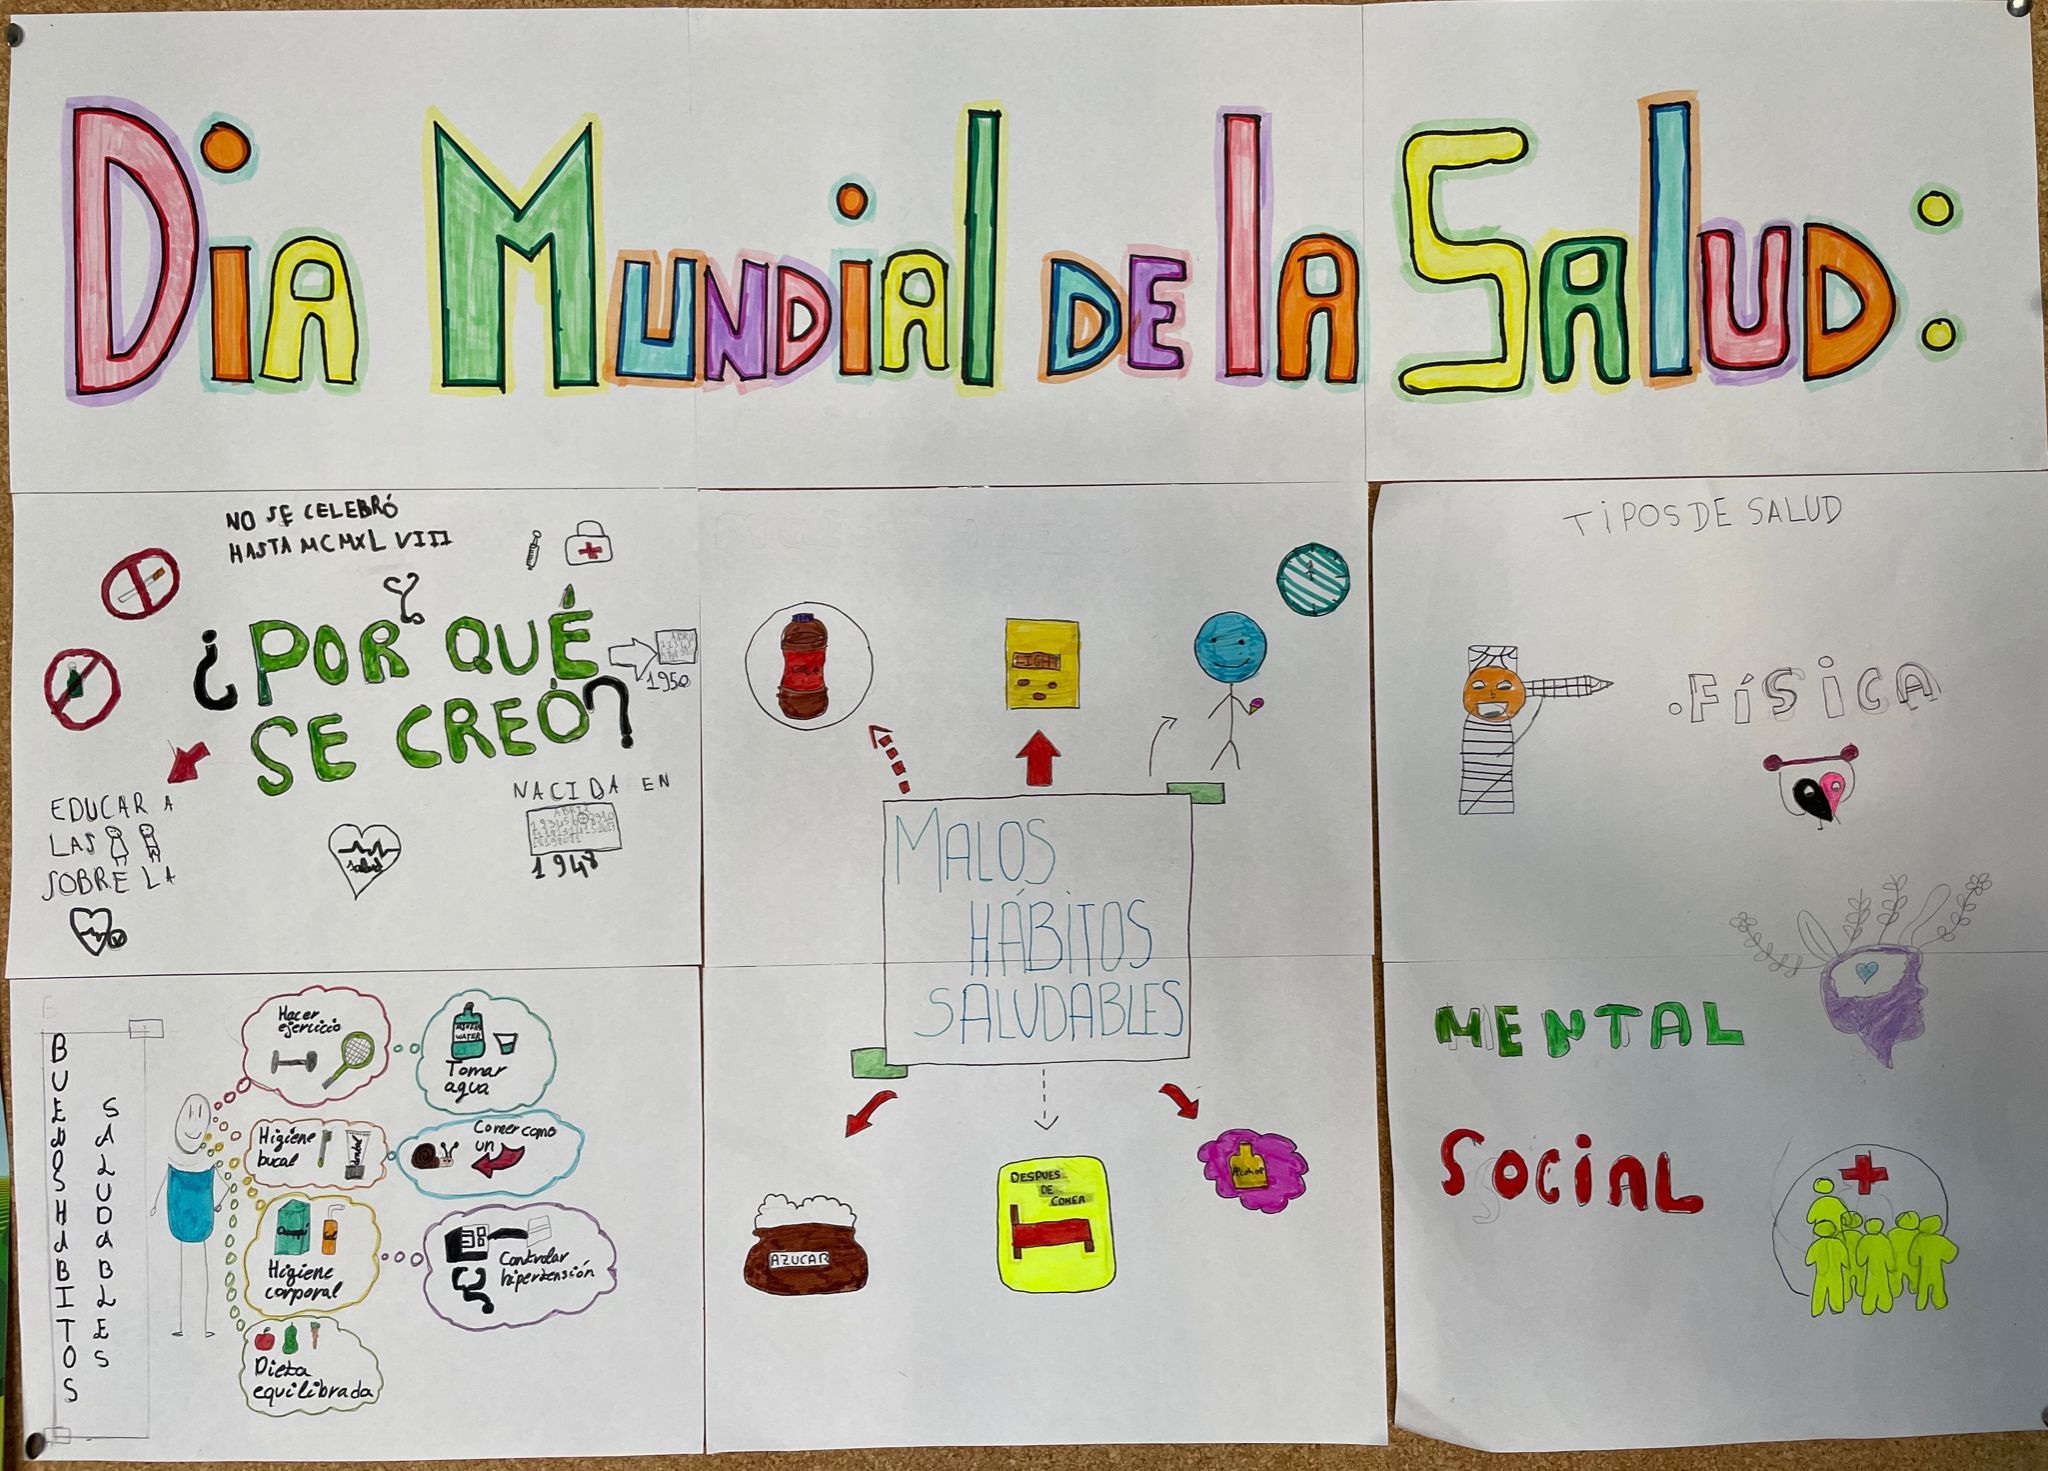 Dia Mundial de la Salud:
NO SE CELEBRÓ
HASTA MCMXLVIII
¿POR QUÉ
SE CREÓ?
1950
EDUCAR A
LAS
SOBRE LA
salud
NACIDA EN
ABRIL
1948
COLA
LIGHT
MALOS
HÁBITOS
SALUDABLES
AZUCAR
DESPUES
DE
COMER
Alcohol
TIPOS DE SALUD
.FÍSICA
MENTAL
SOCIAL
BUENOS HABITOS
SALUDABLES
Hacer
ejercicio
WATER
Tomar
agua
Higiene
bucal
Comer como
un
Higiene
corporal
Controlar
hipertensión
Dieta
equilibrada